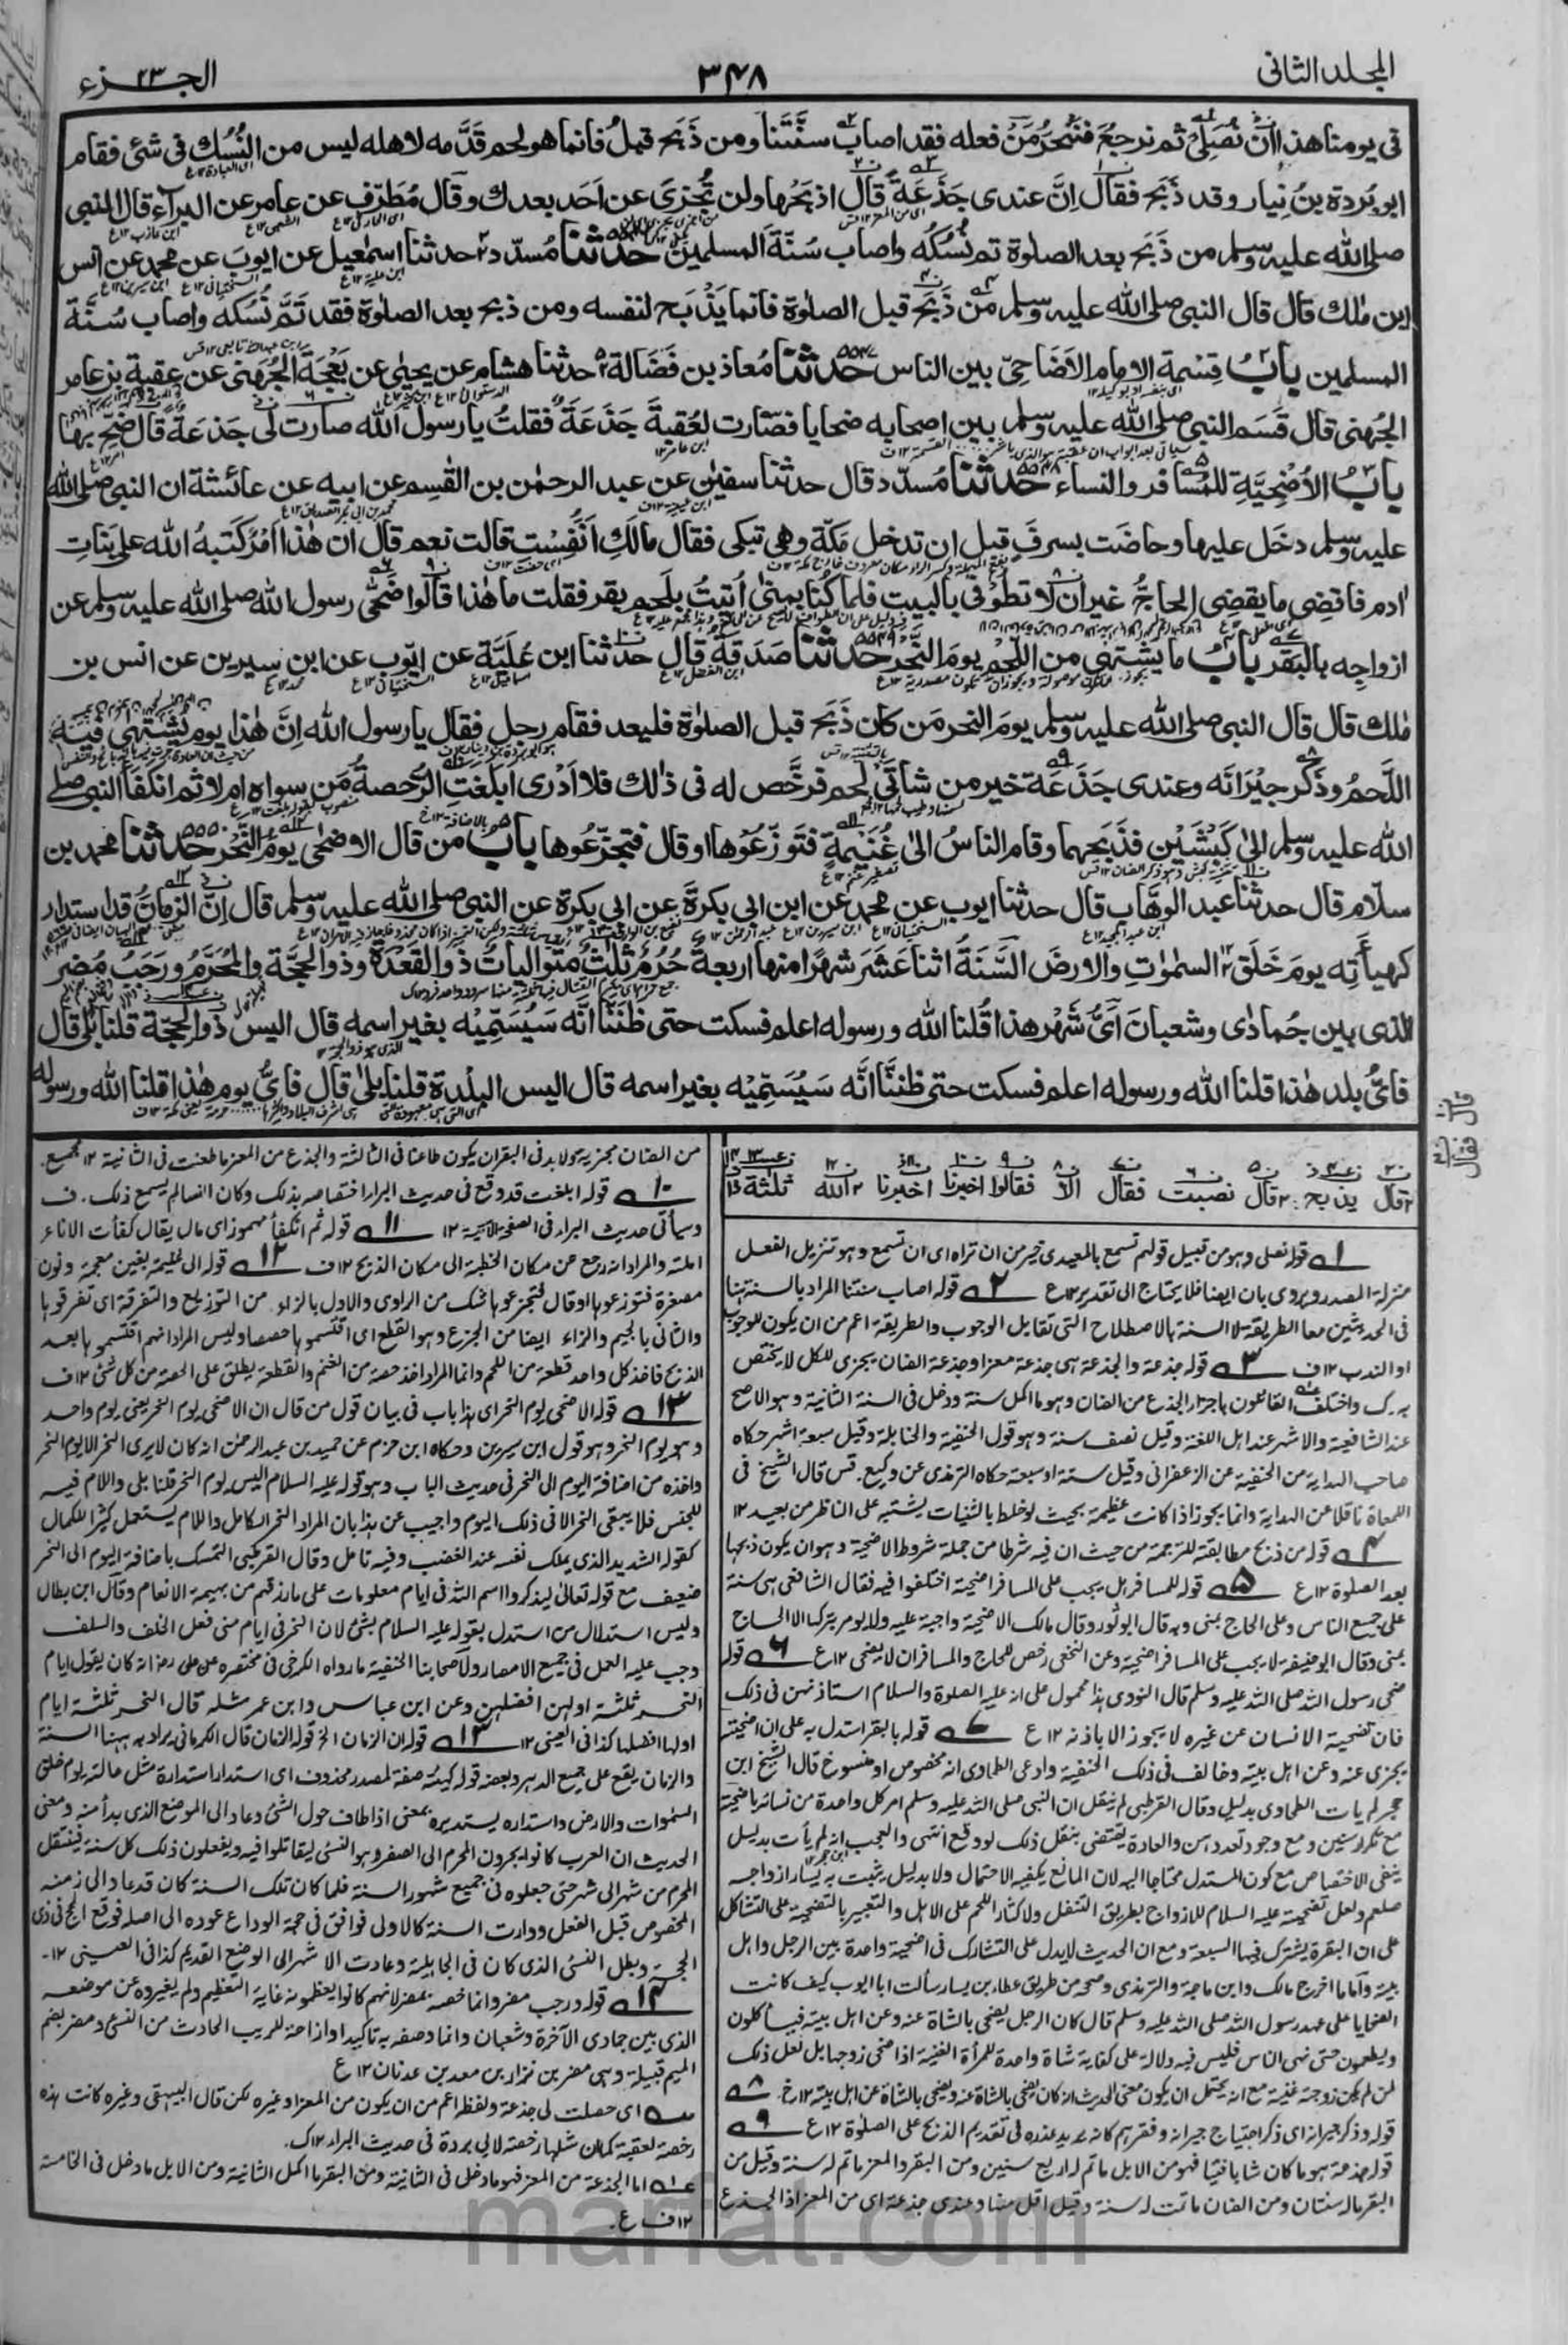 المجلد الثانى
٣٤٨
الجـــزء ٢٣
فى يومنا هذا ان نصلى ثم نرجع فننحر من فعله فقد اصاب سنتنا ومن ذبح قبل فانما هو لحم قدمه لاهله ليس من النسك فى شئ فقام
ابو بردة بن نيار وقد ذبح فقال ان عندى جذعة قال اذبحها ولن تجزى عن احد بعدك وقال مطرف عن عامر عن البراء قال النبى
صلى الله عليه وسلم من ذبح بعد الصلوة تم نسكه واصاب سنة المسلمين حدثنا مسدد حدثنا اسمعيل عن ايوب عن محمد عن انس
ابن ملك قال قال النبى صلى الله عليه وسلم من ذبح قبل الصلوة فانما يذبح لنفسه ومن ذبح بعد الصلوة فقد تم نسكه واصاب سنة
المسلمين باب قسمة الامام الاضاحى بين الناس حدثنا معاذ بن فضالة حدثنا هشام عن يحيى عن بعجة الجهنى عن عقبة بن عامر
الجهنى قال قسم النبى صلى الله عليه وسلم بين اصحابه ضحايا فصارت لعقبة جذعة فقلت يا رسول الله صارت لى جذعة قال ضح بها
باب الاضحية للمسافر والنساء حدثنا مسدد قال حدثنا سفين عن عبد الرحمن بن القسم عن ابيه عن عائشة ان النبى صلى الله
عليه وسلم دخل عليها وحاضت بسرف قبل ان تدخل مكة وهى تبكى فقال مالك انفست قالت نعم قال ان هذا امر كتبه الله على بنات
ادم فاقضى ما يقضى الحاج غير ان لا تطوفى بالبيت فلما كنا بمنى اتيت بلحم بقر فقلت ما هذا قالوا ضحى رسول الله صلى الله عليه وسلم عن
ازواجه بالبقر باب ما يشتهى من اللحم يوم النحر حدثنا صدقة قال حدثنا ابن علية عن ايوب عن ابن سيرين عن انس بن
ملك قال قال النبى صلى الله عليه وسلم يوم النحر من كان ذبح قبل الصلوة فليعد فقام رجل فقال يا رسول الله ان هذا يوم يشتهى فيه
اللحم وذكر جيرانه وعندى جذعة خير من شاتى لحم فرخص له فى ذلك فلا ادرى ابلغت الرخصة من سواه ام لا ثم انكفأ النبى صلى
الله عليه وسلم الى كبشين فذبحهما وقام الناس الى غنيمة فتوزعوها او قال فتجزعوها باب من قال الاضحى يوم النحر حدثنا محمد بن
سلام قال حدثنا عبد الوهاب قال حدثنا ايوب عن محمد عن ابن ابى بكرة عن ابى بكرة عن النبى صلى الله عليه وسلم قال ان الزمان قد استدار
كهيأته يوم خلق السموت والارض السنة اثنا عشر شهرا منها اربعة حرم ثلث متواليات ذو القعدة وذو الحجة والمحرم ورجب مضر
الذى بين جمادى وشعبان اى شهر هذا قلنا الله ورسوله اعلم فسكت حتى ظننا انه سيسميه بغير اسمه قال اليس ذو الحجة قلنا بلى قال
فاى بلد هذا قلنا الله ورسوله اعلم فسكت حتى ظننا انه سيسميه بغير اسمه قال اليس البلدة قلنا بلى قال فاى يوم هذا قلنا الله ورسوله
قال يذبح قال نصبت فقال الا فقالوا اخبرنا اخبرنا الله ثلثة
١ قوله نصلى وهو من قبيل قولهم تسمع بالمعيدى خير من ان تراه اى ان تسمع وهو تنزيل الفعل
منزلة المصدر ويروى بان ايضا فلا يحتاج الى تقدير ١٢ع ٢ قوله اصاب سنتنا المراد بالسنة هنا
فى الحديثين معا الطريقة لا السنة بالاصطلاح التى تقابل الوجوب والطريقة اعم من ان يكون للوجوب
او الندب ١٢ف ٣ قوله جذعة والجذعة هى جذعة معز او جذعة الضان يجزى للكل لا يختص
به.ك واختلف القائلون باجزاء الجذع من الضان وهو ما اكمل سنة ودخل فى السنة الثانية وهو الاصح
عند الشافعية والاشهر عند اهل اللغة وقيل نصف سنة وهو قول الحنفية والحنابلة وقيل سبعة اشهر حكاه
صاحب الهداية من الحنفية عن الزعفرانى وقيل ستة او سبعة حكاه الترمذى عن وكيع. قس قال الشيخ فى
اللمعات ناقلا عن الهداية وانما يجوز اذا كانت عظيمة بحيث لو خلط بالثنيات يشتبه على الناظر من بعيد ١٢
٤ قوله من ذبح مطابقته للترجمة من حيث ان فيه شرطا من جملة شروط الاضحية وهو ان يكون ذبحها
بعد الصلوة ١٢ع ٥ قوله للمسافر هل يجب على المسافر اضحية اختلفوا فيه فقال الشافعى هى سنة
على جميع الناس وعلى الحاج بمنى وبه قال ابو ثور وقال مالك الاضحية واجبة عليه ولا يومر بتركها الا الحاج
بمنى وقال ابو حنيفة لا يجب على المسافر اضحية وعن النخعى رخص للحاج والمسافر ان لا يضحى ١٢ع ٦ قوله
ضحى رسول الله صلى الله عليه وسلم قال النووى هذا محمول على انه عليه الصلوة والسلام استاذنهن فى ذلك
فان تضحية الانسان عن غيره لا يجوز الا باذنه ١٢ع ٧ قوله بالبقر استدل به على ان اضحيته
يجزى عنه وعن اهل بيته وخالف فى ذلك الحنفية وادعى الطحاوى انه مخصوص او منسوخ قال الشيخ ابن
حجر لم يات الطحاوى بدليل وقال القرطبى لم ينقل ان النبى صلى الله عليه وسلم امر كل واحدة من نسائه باضحية
مع تكرار سنين ومع وجود تعددهن والعادة يقتضى بنقل ذلك لو وقع انتهى والعجب انه لم يأت بدليل
ينفى الاختصاص مع كون المستدل محتاجا اليه لان المانع يكفيه الاحتمال ولا بدليل يثبت به يسار ازواجه
صلعم ولعل تضحيته عليه السلام للازواج بطريق التنفل ولاكثار اللحم على الاهل والتعبير بالتضحية على التشاكل
على ان البقرة يشترك فيها السبعة ومع ان الحديث لا يدل على التشارك فى اضحية واحدة بين الرجل واهل
بيته واما ما اخرج مالك وابن ماجة والترمذى وصححه من طريق عطاء بن يسار سألت ابا ايوب كيف كانت
الضحايا على عهد رسول الله صلى الله عليه وسلم قال كان الرجل يضحى بالشاة عنه وعن اهل بيته فيأكلون
ويطعمون حتى تهى الناس فليس فيه دلالة على كفاية شاة واحدة للمرأة الغنية اذا ضحى زوجها بل لعل ذلك
لمن لم يكن زوجته غنية مع انه يحتمل ان يكون معنى الحديث انه كان يضحى بالشاة عنه ويضحى بالشاة عن اهل بيته ١٢خ ٨
قوله وذكر جيرانه اى ذكر احتياج جيرانه وفقرهم كانه يريد عذره فى تقديم الذبح على الصلوة ١٢ع ٩
قوله جذعة هو ما كان شابا فتيا فهو من الابل ما تم له اربع سنين ومن البقر والمعز ما تم له سنة وقيل من
البقر ماله سنتان ومن الضان ما تمت له سنة وقيل اقل منها وعندى جذعة اى من المعز اذ الجذع
من الضان مجزية ولا بد فى البقر ان يكون طاعنا فى الثالثة والجذع من المعز ما طعنت فى الثانية ١٢ مجمع.
١٠ قوله ابلغت قد وقع فى حديث البراء اختصاصه بذلك وكان انسا لم يسمع ذلك. ف
وسيأتى حديث البراء فى الصفحة الآتية ١٢ ١١ قوله ثم انكفأ مهموز اى مال يقال كفأت الاناء
املته والمراد انه رجع عن مكان الخطبة الى مكان الذبح ١٢ف ١٢ قوله الى غنيمة بغين معجمة ونون
مصغرة فتوزعوها او قال فتجزعوها شك من الراوى والاول بالزاء من التوزيع والتفرقة اى تفرقوها
والثانى بالجيم والزاء ايضا من الجزع وهو القطع اى اقتسموها حصصا وليس المراد انهم اقتسموها بعد
الذبح فاخذ كل واحد قطعة من اللحم وانما المراد اخذ حصة من الغنم والقطعة يطلق على الحصة من كل شئ ١٢ف
١٣ قوله الاضحى يوم النحر اى هذا باب فى بيان قول من قال ان الاضحى يوم النحر يعنى يوم واحد
وهو يوم النحر وهو قول ابن سيرين وحكاه ابن حزم عن حميد بن عبد الرحمن انه كان لا يرى النحر الا يوم النحر
واخذه من اضافة اليوم الى النحر فى حديث الباب وهو قوله عليه السلام اليس يوم النحر قلنا بلى واللام فيه
للجنس فلا يبقى النحر الا فى ذلك اليوم واجيب عن هذا بان المراد النحر الكامل واللام يستعمل كثيرا للكمال
كقوله الشديد الذى يملك نفسه عند الغضب وفيه تامل وقال القرطبى التمسك باضافة اليوم الى النحر
ضعيف مع قوله تعالى ليذكروا اسم الله فى ايام معلومات على ما رزقهم من بهيمة الانعام وقال ابن بطال
وليس استدلال من استدل بقوله عليه السلام بشئ لان النحر فى ايام منى فعل الخلف والسلف
وجب عليه العمل فى جميع الامصار ولاصحابنا الحنفية ما رواه الكرخى فى مختصره عن على رض انه كان يقول ايام
النحر ثلثة اولهن افضلهن وعن ابن عباس وابن عمر مثله قال النحر ثلثة ايام
اولها افضلها كذا فى العينى ١٢ ١٣ قوله ان الزمان الخ قوله الزمان قال الكرمانى يراد به ههنا السنة
والزمان يقع على جميع الدهر وبعضه قوله كهيئته صفة لمصدر محذوف اى استدار استدارة مثل حالته يوم خلق
السموات والارض واستداره يستديره بمعنى اذا طاف حول الشئ وعاد الى الموضع الذى بدأ منه ومعنى
الحديث ان العرب كانوا يحرون المحرم الى الصفر وهو النسئ ليقاتلوا فيه ويفعلون ذلك كل سنة فينتقل
المحرم من شهر الى شهر حتى جعلوه فى جميع شهور السنة فلما كان تلك السنة كان قد عاد الى زمنه
المخصوص قبل الفعل ودارت السنة كالاولى فوافق فى حجة الوداع عوده الى اصله فوقع الحج فى ذى
الحجة وبطل النسئ الذى كان فى الجاهلية وعادت الاشهر الى الوضع القديم كذا فى العينى ١٢
١٤ قوله ورجب مضر وانما خصه بمضر لانهم كانوا يعظمونه غاية التعظيم ولم يغيروه عن موضعه
الذى بين جمادى الآخرة وشعبان وانما وصفه به تاكيدا واذاحة للريب الحادث من النسئ ومضر بضم
الميم قبيلة وهى مضر بن نزار بن معد بن عدنان ١٢ ع
اى حصلت لى جذعة ولفظه اعم من ان يكون من المعز او غيره لكن قال البيهقى وغيره كانت هذه
رخصة لعقبة كما ان مثلها رخصة لابى بردة فى حديث البراء ١٢ك.
اما الجذعة من المعز فهو ما دخل فى الثانية ومن البقر ما اكمل الثانية ومن الابل ما دخل فى الخامسة
١٢ف ع.
marfat.com